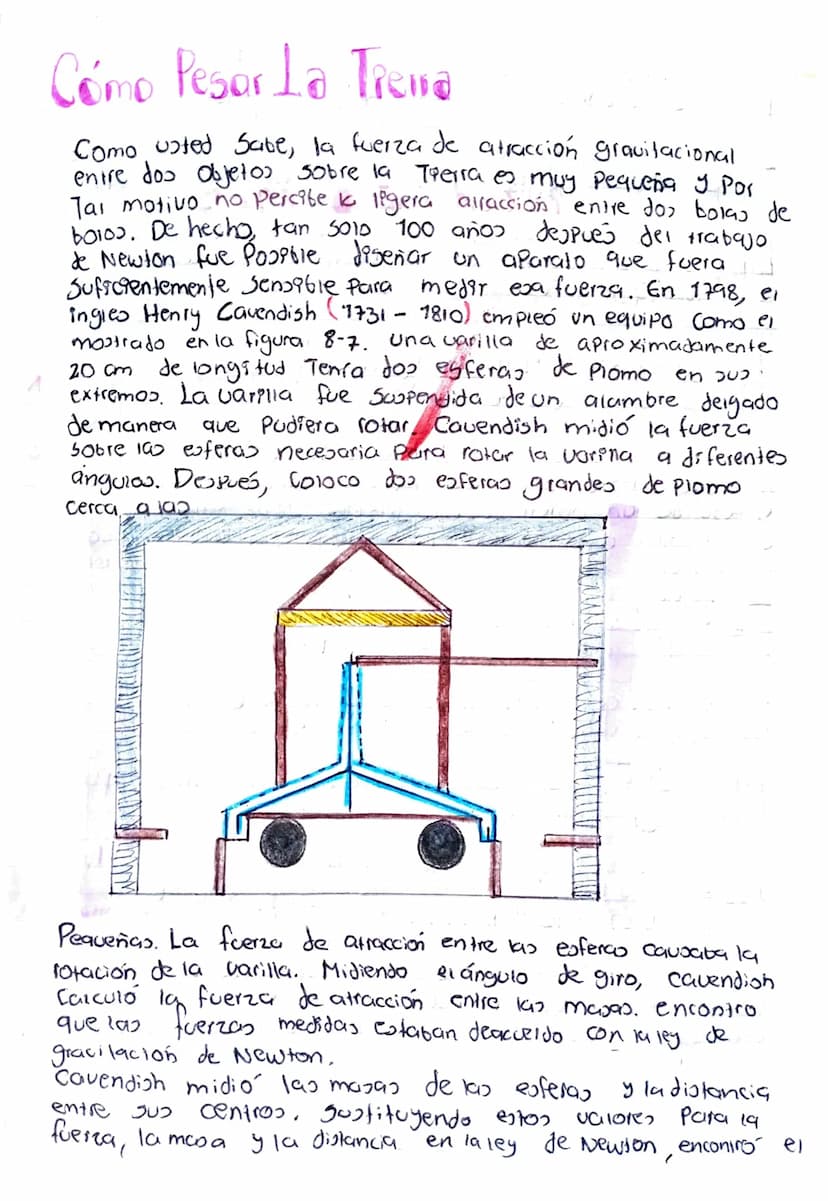 Cómo Pesar La Tierra
Como usted Sabe, la fuerza de atracción gravitacional
entre dos objetos sobre la Tierra es muy pequeña y Por
Tal motivo no percibe la ligera atracción entre dos bolas de
bolos. De hecho, tan solo 100 años después del trabajo
de Newton fue Posible diseñar un aparato que fuera
suficientemente sensible para medir esa fuerza. En 1798, el
ingles Henry Cavendish (1731 - 1810) empleó un equipo como el
mostrado en la figura 8-7. una varilla de aproximadamente
20 cm de longitud Tenía dos esferas de Plomo en sus
extremos. La varilla fue suspendida de un alambre delgado
de manera que pudiera rotar. Cavendish midió la fuerza
sobre las esferas necesaria para rotar la varilla a diferentes
ángulos. Después, Coloco dos esferas grandes de Plomo
cerca a las
Pequeñas. La fuerza de atracción entre las esferas causaba la
rotación de la varilla. Midiendo el ángulo de giro, cavendish
Calculó la fuerza de atracción entre las masas. encontro
que las fuerzas medidas estaban deacuerdo con la ley de
gravitación de Newton.
Cavendish midió las masas de las esferas y la distancia
entre sus centros. Sustituyendo estos valores Para la
fuerza, la masa y la distancia en la ley de Newton, encontró el